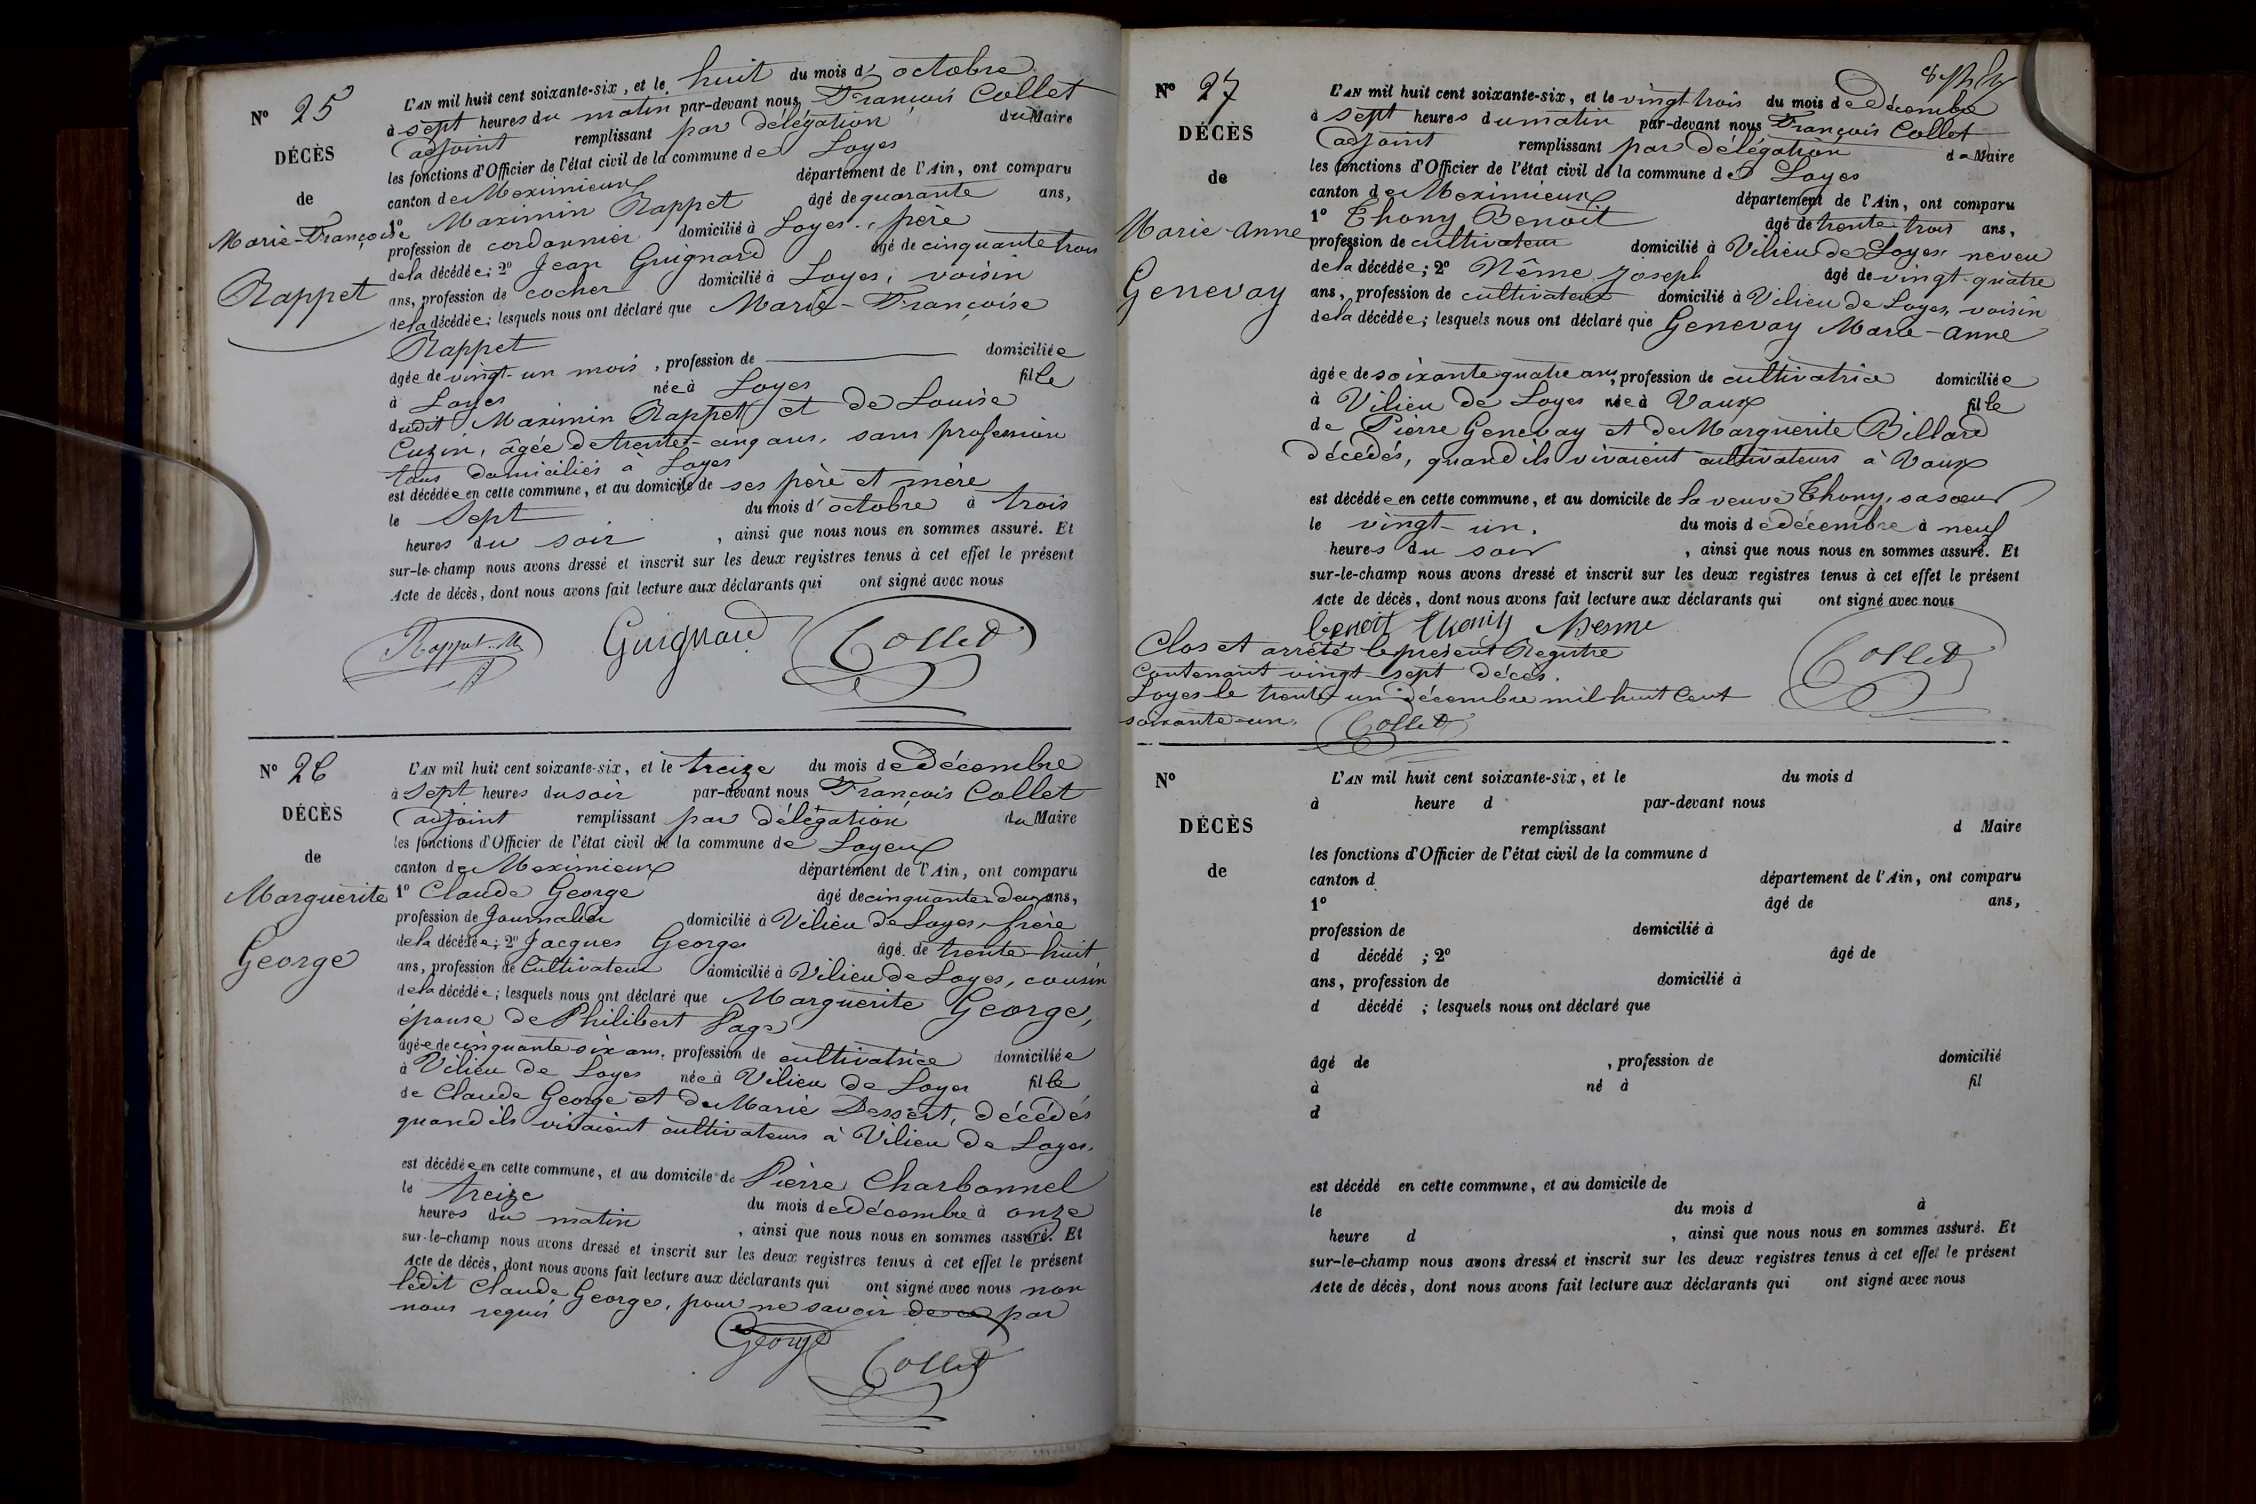 Nº 25
DÉCÈS
de
Marie-Françoise
Rappet
L'AN mil huit cent soixante-six, et le huit du mois d'octobre
à sept heures du matin par-devant nous François Collet
adjoint remplissant par délégation du Maire
les fonctions d'Officier de l'état civil de la commune de Loyes
canton de Meximieux département de l'Ain, ont comparu
1º Maximin Rappet âgé de quarante ans,
profession de cordonnier domicilié à Loyes, père
de la décédée; 2º Jean Guignard âgé de cinquante trois
ans, profession de cocher domicilié à Loyes, voisin
de la décédée; lesquels nous ont déclaré que Marie-Françoise
Rappet
âgée de vingt-un mois, profession de domiciliée
à Loyes née à Loyes fille
dudit Maximin Rappet et de Louise
Cuzin, âgée de trente-cinq ans, sans profession
tous domiciliés à Loyes
est décédée en cette commune, et au domicile de ses père et mère
le sept du mois d'octobre à trois
heures du soir, ainsi que nous nous en sommes assuré. Et
sur-le-champ nous avons dressé et inscrit sur les deux registres tenus à cet effet le présent
Acte de décès, dont nous avons fait lecture aux déclarants qui ont signé avec nous
Rappet M Guignard Collet
Nº 26
DÉCÈS
de
Marguerite
George
L'AN mil huit cent soixante-six, et le treize du mois de Décembre
à sept heures du soir par-devant nous François Collet
adjoint remplissant par délégation du Maire
les fonctions d'Officier de l'état civil de la commune de Loyeux
canton de Meximieux département de l'Ain, ont comparu
1º Claude George âgé de cinquante-deux ans,
profession de Journalier domicilié à Vilieu de Loyes, frère
de la décédée; 2º Jacques George âgé de trente-huit
ans, profession de Cultivateur domicilié à Vilieu de Loyes, cousin
de la décédée; lesquels nous ont déclaré que Marguerite George,
épouse de Philibert Page
âgée de cinquante six ans, profession de cultivatrice domiciliée
à Vilieu de Loyes née à Vilieu de Loyes fille
de Claude George et de Marie Dessert, décédés
quand ils vivaient cultivateurs à Vilieu de Loyes.
est décédée en cette commune, et au domicile de Pierre Charbonnel
le treize du mois de Décembre à onze
heures du matin, ainsi que nous nous en sommes assuré. Et
sur-le-champ nous avons dressé et inscrit sur les deux registres tenus à cet effet le présent
Acte de décès, dont nous avons fait lecture aux déclarants qui ont signé avec nous non
ledit Claude George, pour ne savoir de ce par
nous requis
George
Collet
Nº 27
DÉCÈS
de
Marie-Anne
Genevay
L'AN mil huit cent soixante-six, et le vingt-trois du mois de Décembre
à sept heures du matin par-devant nous François Collet
adjoint remplissant par délégation du Maire
les fonctions d'Officier de l'état civil de la commune de Loyes
canton de Meximieux département de l'Ain, ont comparu
1º Thony Benoit âgé de trente trois ans,
profession de cultivateur domicilié à Vilieu de Loyes, neveu
de la décédée; 2º Nême Joseph âgé de vingt-quatre
ans, profession de cultivateur domicilié à Vilieu de Loyes, voisin
de la décédée; lesquels nous ont déclaré que Genevay Marie-Anne
âgée de soixante quatre ans, profession de cultivatrice domiciliée
à Vilieu de Loyes née à Vaux fille
de Pierre Genevay et de Marguerite Billard
décédés, quand ils vivaient cultivateurs à Vaux
est décédée en cette commune, et au domicile de la veuve Thony, sa sœur
le vingt-un. du mois de décembre à neuf
heures du soir, ainsi que nous nous en sommes assuré. Et
sur-le-champ nous avons dressé et inscrit sur les deux registres tenus à cet effet le présent
Acte de décès, dont nous avons fait lecture aux déclarants qui ont signé avec nous
benoit thony Nesme
Collet
Clos et arrêté le présent Registre
Contenant vingt-sept décès.
Loyes le trente-un décembre mil huit cent
soixante-un.
Collet
Nº
DÉCÈS
de
L'AN mil huit cent soixante-six, et le du mois d
à heure d par-devant nous
remplissant d Maire
les fonctions d'Officier de l'état civil de la commune d
canton d département de l'Ain, ont comparu
1º âgé de ans,
profession de domicilié à
d décédé ; 2º âgé de
ans, profession de domicilié à
d décédé ; lesquels nous ont déclaré que
âgé de , profession de domicilié
à né à fil
d
est décédé en cette commune, et au domicile de
le du mois d à
heure d , ainsi que nous nous en sommes assuré. Et
sur-le-champ nous avons dressé et inscrit sur les deux registres tenus à cet effet le présent
Acte de décès, dont nous avons fait lecture aux déclarants qui ont signé avec nous